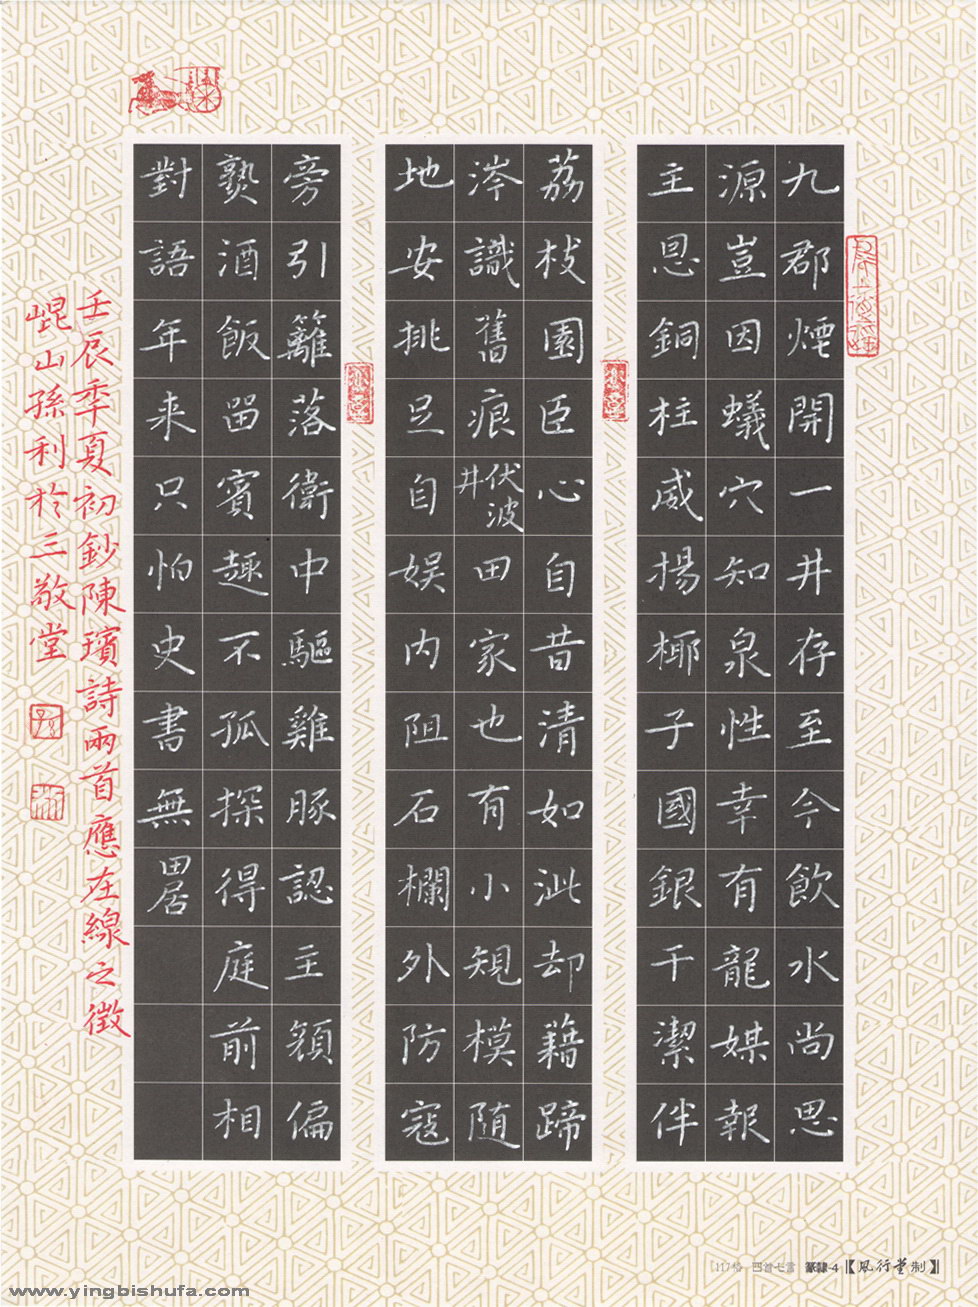 九郡煙開一井存至今飲水尚思
源豈因蟻穴知泉性幸有龍媒報
主恩銅柱威揚椰子國銀干潔伴
荔枝園臣心自昔清如泚却藉蹄
涔識舊痕伏波井田家也有小規模随
地安挑足自娱内阻石欄外防寇
旁引籬落衛中驅雞豚認主額偏
熟酒飯留賓趣不孤探得庭前相
對語年来只怕史書無田居
壬辰季夏初鈔陳璸詩兩首應在線之徵
崐山孫利於三敬堂
117格 四首七言 篆隸-4【風行堂制】
www.yingbishufa.com